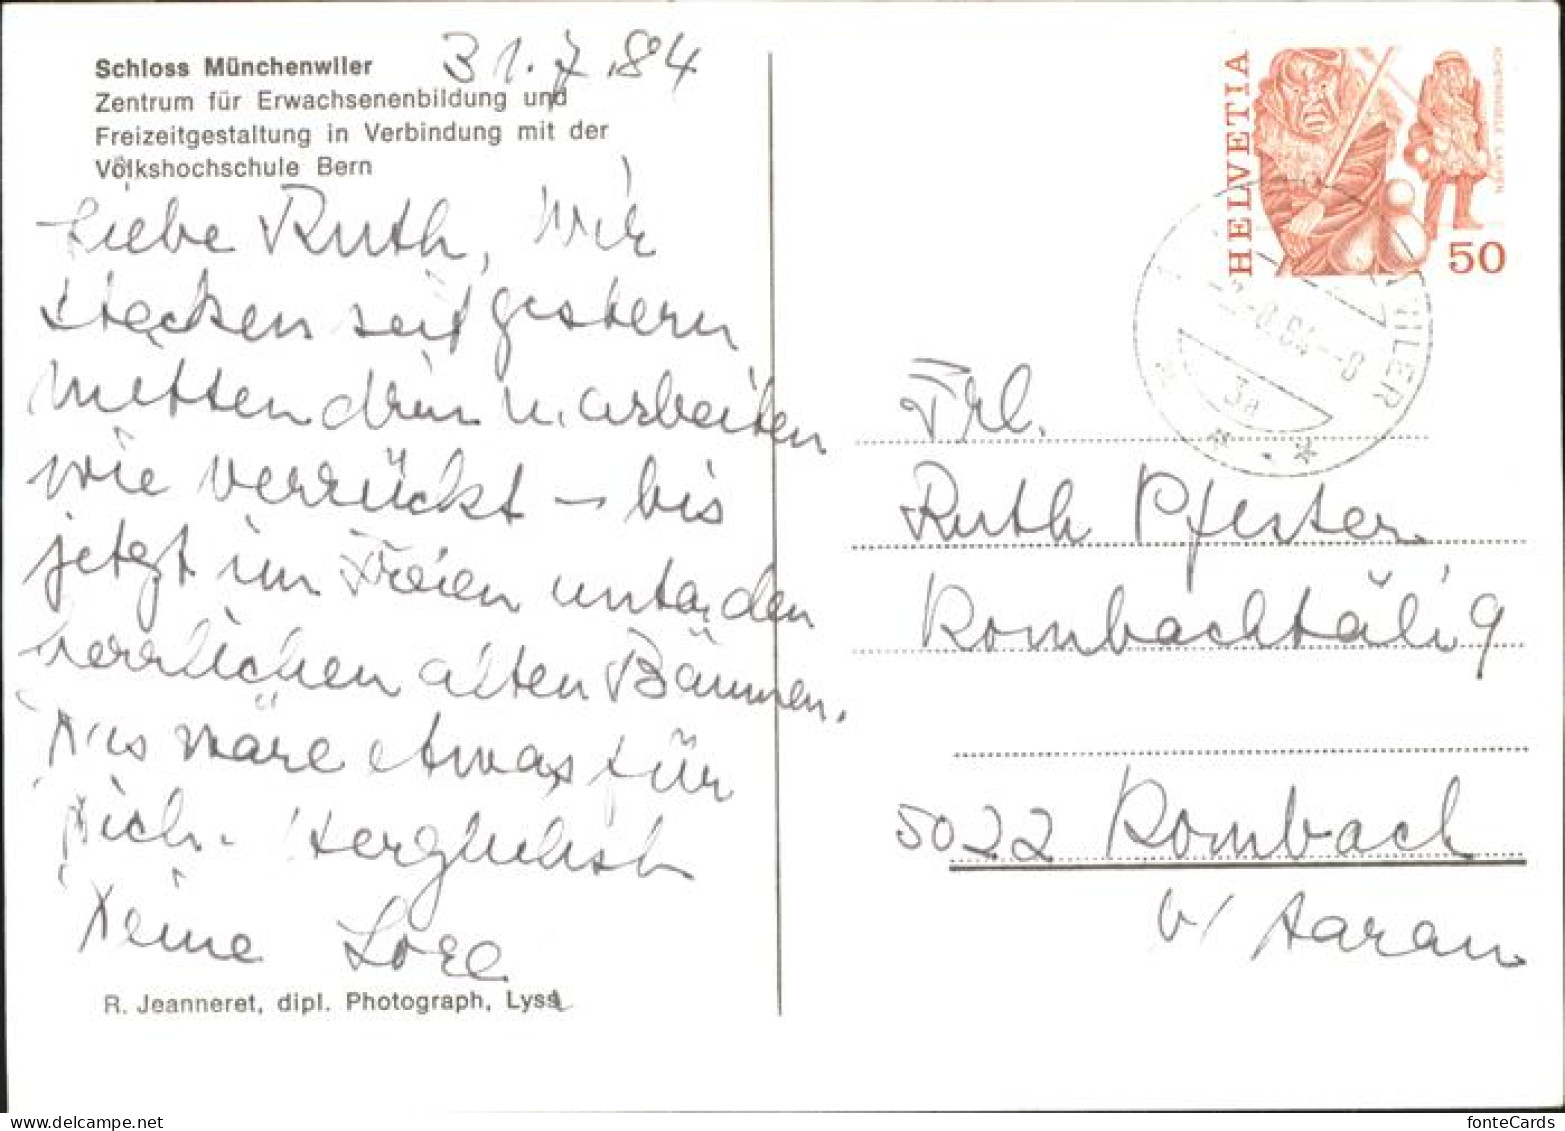 Schloss Münchenwiler
31.7.84
Zentrum für Erwachsenenbildung und
Freizeitgestaltung in Verbindung mit der
Volkshochschule Bern
Liebe Ruth, Wir
stecken seit gestern
mitten drin u. arbeiten
wie verrückt – bis
jetzt im Freien unter den
herrlichen alten Bäumen.
Das wäre etwas für
Dich. Herzlichst
Deine Lore
R. Jeanneret, dipl. Photograph, Lyss
HELVETIA
50
SCHETRINGELE LAUPEN
WILER
3a
Frl.
Ruth Pfister
Rombachtäli 9
5022 Rombach
b/ Aarau
fonteCards